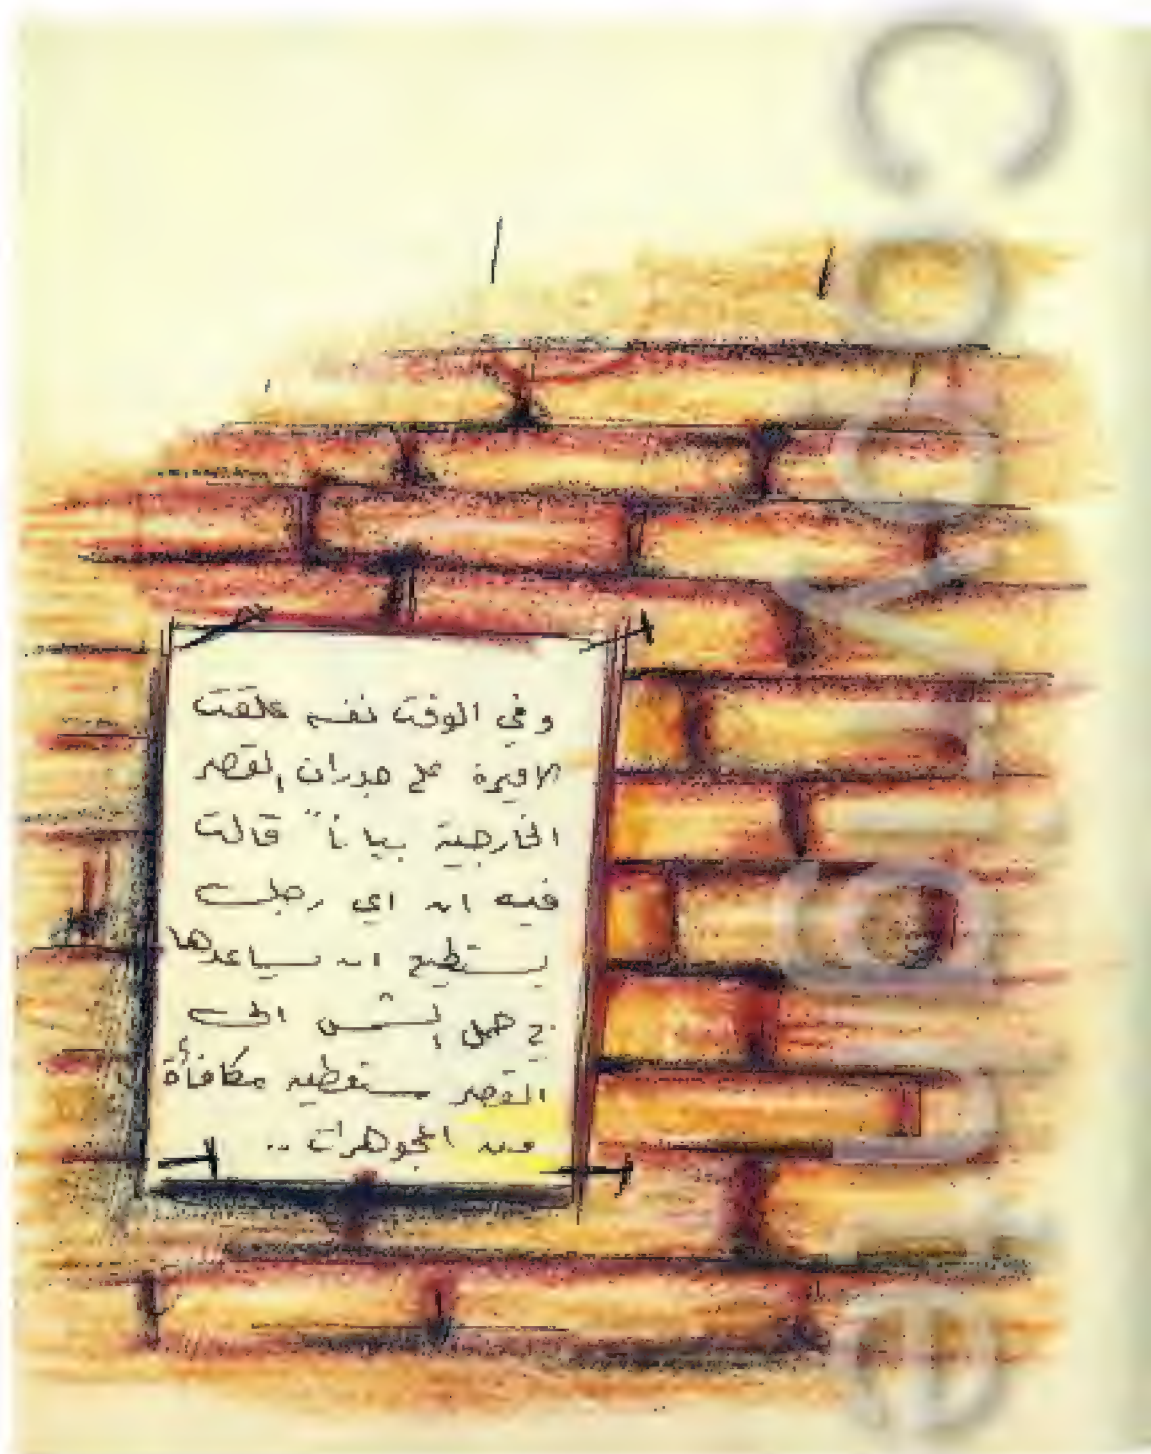 وفي الوقت نفسه علقت
الاميرة على جدران القصر
الخارجية بياناً قالت
فيه ان اي رجل
يستطيع ان يساعدها
في حمل الشمس الى
القصر ستعطيه مكافأة
من المجوهرات ..
Copyrighte